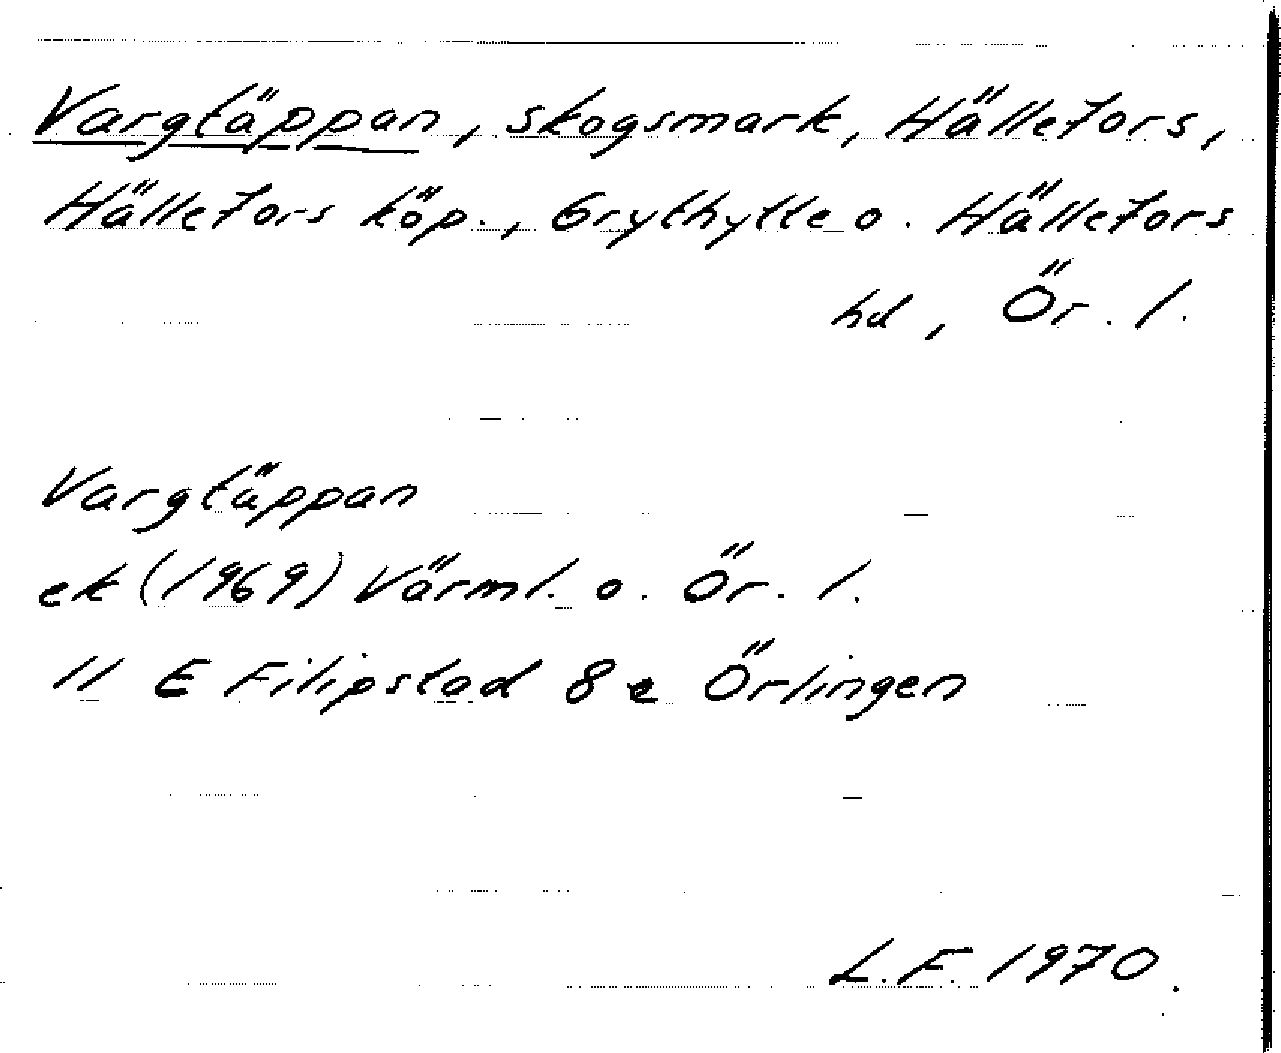 Vargtäppan, skogsmark, Hällefors,
Hällefors köp., Grythytte o. Hällefors
hd, Ör. l.
Vargtäppan
ek (1969) Värml. o. Ör. l.
11 E Filipstad 8 e Örlingen
L.F. 1970.